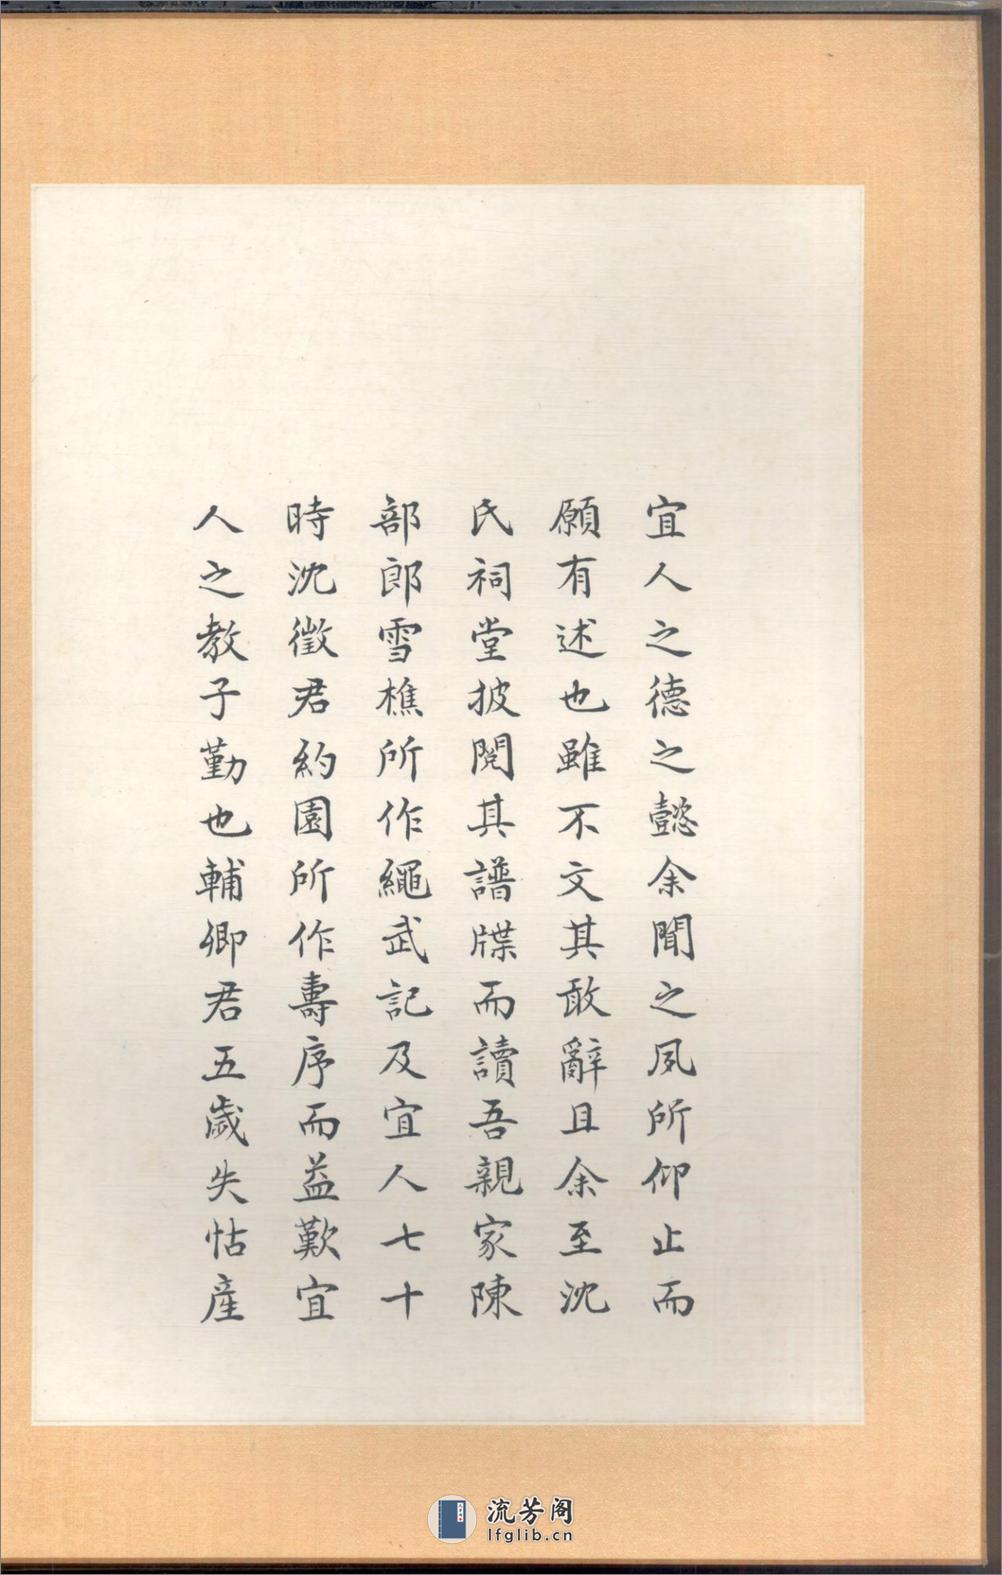 宜人之德之懿余聞之夙所仰止而
願有述也雖不文其敢辭且余至沈
氏祠堂披閱其譜牒而讀吾親家陳
部郎雪樵所作繩武記及宜人七十
時沈徵君約園所作壽序而益歎宜
人之教子勤也輔卿君五歲失怙產
流芳阁
lfglib.cn